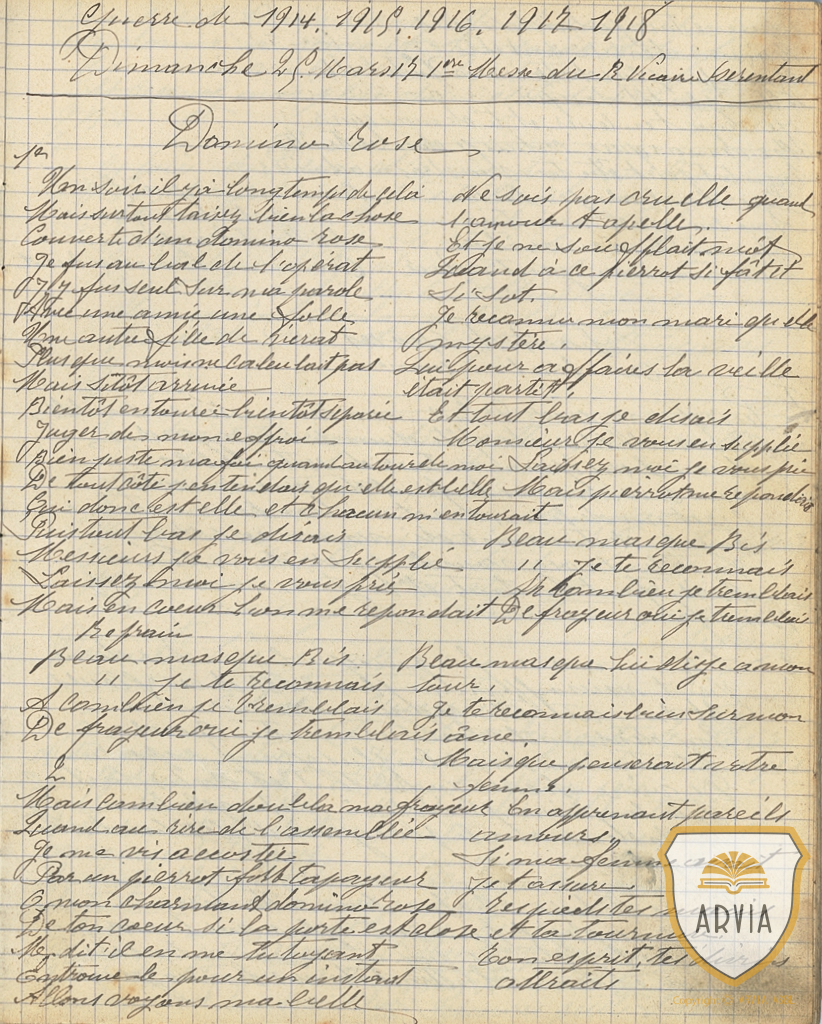 Guerre de 1914. 1915. 1916. 1917 1918
Dimanche 25. Mars 17 1ere Messe du R Vicaire
Domino rose
1er
Un soir il y a longtemps de cela
Mais surtout taisez bien la chose
Couverte d'un domino rose
Je fus au bal de l'opérat
J'y fus seul sur ma parole
Avec une amie une folle
Une autre fille de
Plus que moi ne calculait pas
Mais sitôt arrivée
Bientôt entourée bientôt séparée
Juger de mon effroi
Bien juste ma foi quand autour de moi
De tout côté j'entendais qu'elle est belle
Qui donc est elle et chacun m'entourait
Puis tout bas je disais
Messieurs je vous en supplié
Laissez moi je vous prie
Mais en coeur l'on me repondait
Refrain
Beau masque Bis
" je te reconnais
A combien je tremblais
De frayeur oui je tremblais
2
Mais combien doubla ma frayeur
Quand au rire de l'assemblée
Je me vis accoster
Par un pierrot fort tapageur
O mon charmant domino rose
De ton coeur si la porte est close
M dit il en me tutoyant
Entrouve le pour un instant
Allons voyons ma belle
Ne sois pas cruelle quand
l'amour t apelle.
Et je ne soufflait mot
Quand à ce pierrot si fât et
Si Sot.
Je reconnu mon mari quelle
mystère.
Qui pour affaires la veille
était partit
Et tout bas je disais
Monsieur je vous en supplie
Laissez moi je vous prie
Mais pierrot me repondait
Beau masque Bis
" je te reconnais
Ah combien je tremblais
De frayeur oui je tremblais
Beau masque lui dis je a mon
tour.
Je te reconnais bien sur mon
âme
Mais que penserait votre
femme.
En apprenant pareils
amours.
Si ma femme
Je t assure
et ta
Ton esprit, tes divins
attraits
ARVIA